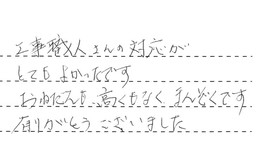 工事職人さんの対応が
とてもよかったです
おねだんも高くもなくまんぞくです
有りがとうございました